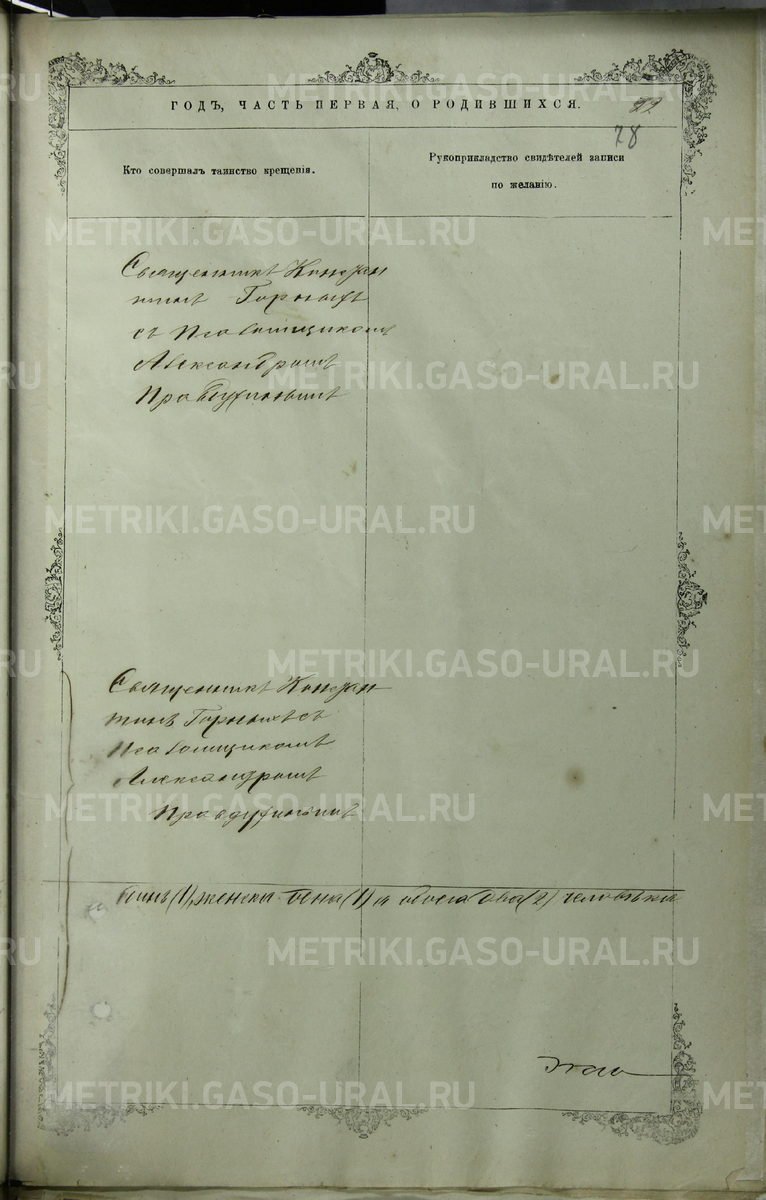 METRIKI.GASO-URAL.RU
ГОДЪ, ЧАСТЬ ПЕРВАЯ, О РОДИВШИХСЯ.
78
Кто совершалъ таинство крещенія.
Рукоприкладство свидѣтелей записи
по желанію.
Священникъ Констан
тинъ Горныхъ
съ Псаломщикомъ
Александромъ
Правдухинымъ
Священникъ Констан
тинъ Горныхъ съ
Псаломщикомъ
Александромъ
Правдухинымъ
динъ (1), женска одна (1) и обоего два (2) человѣка